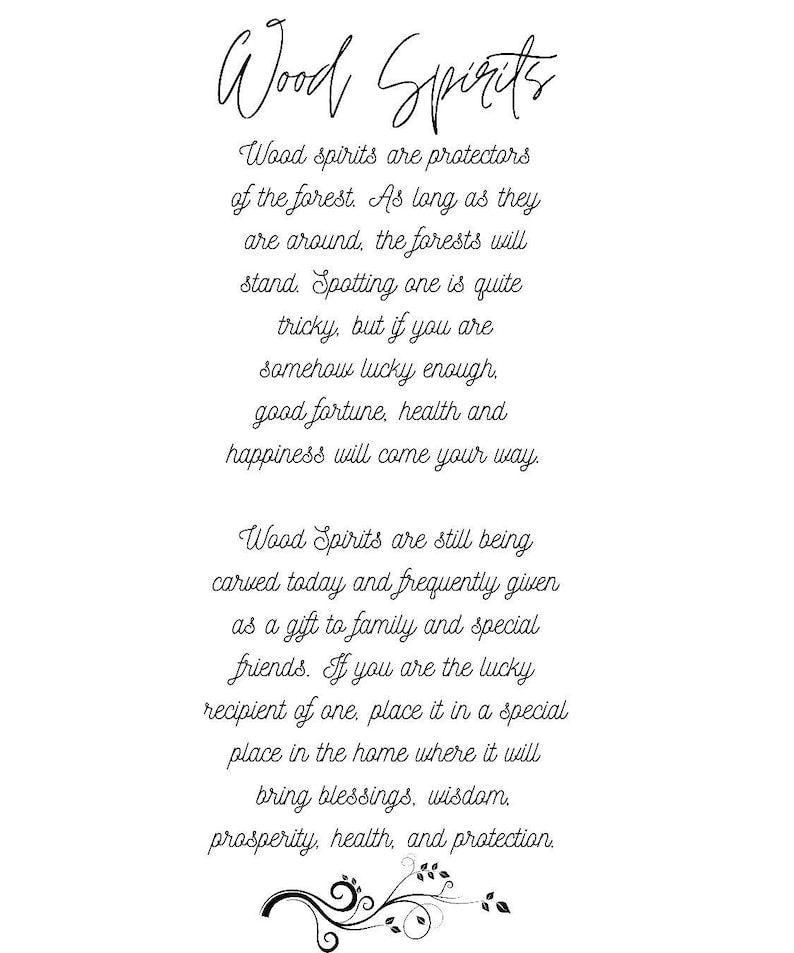 Wood Spirits
Wood spirits are protectors
of the forest. As long as they
are around, the forests will
stand. Spotting one is quite
tricky, but if you are
somehow lucky enough,
good fortune, health and
happiness will come your way.
Wood Spirits are still being
carved today and frequently given
as a gift to family and special
friends. If you are the lucky
recipient of one, place it in a special
place in the home where it will
bring blessings, wisdom,
prosperity, health, and protection.